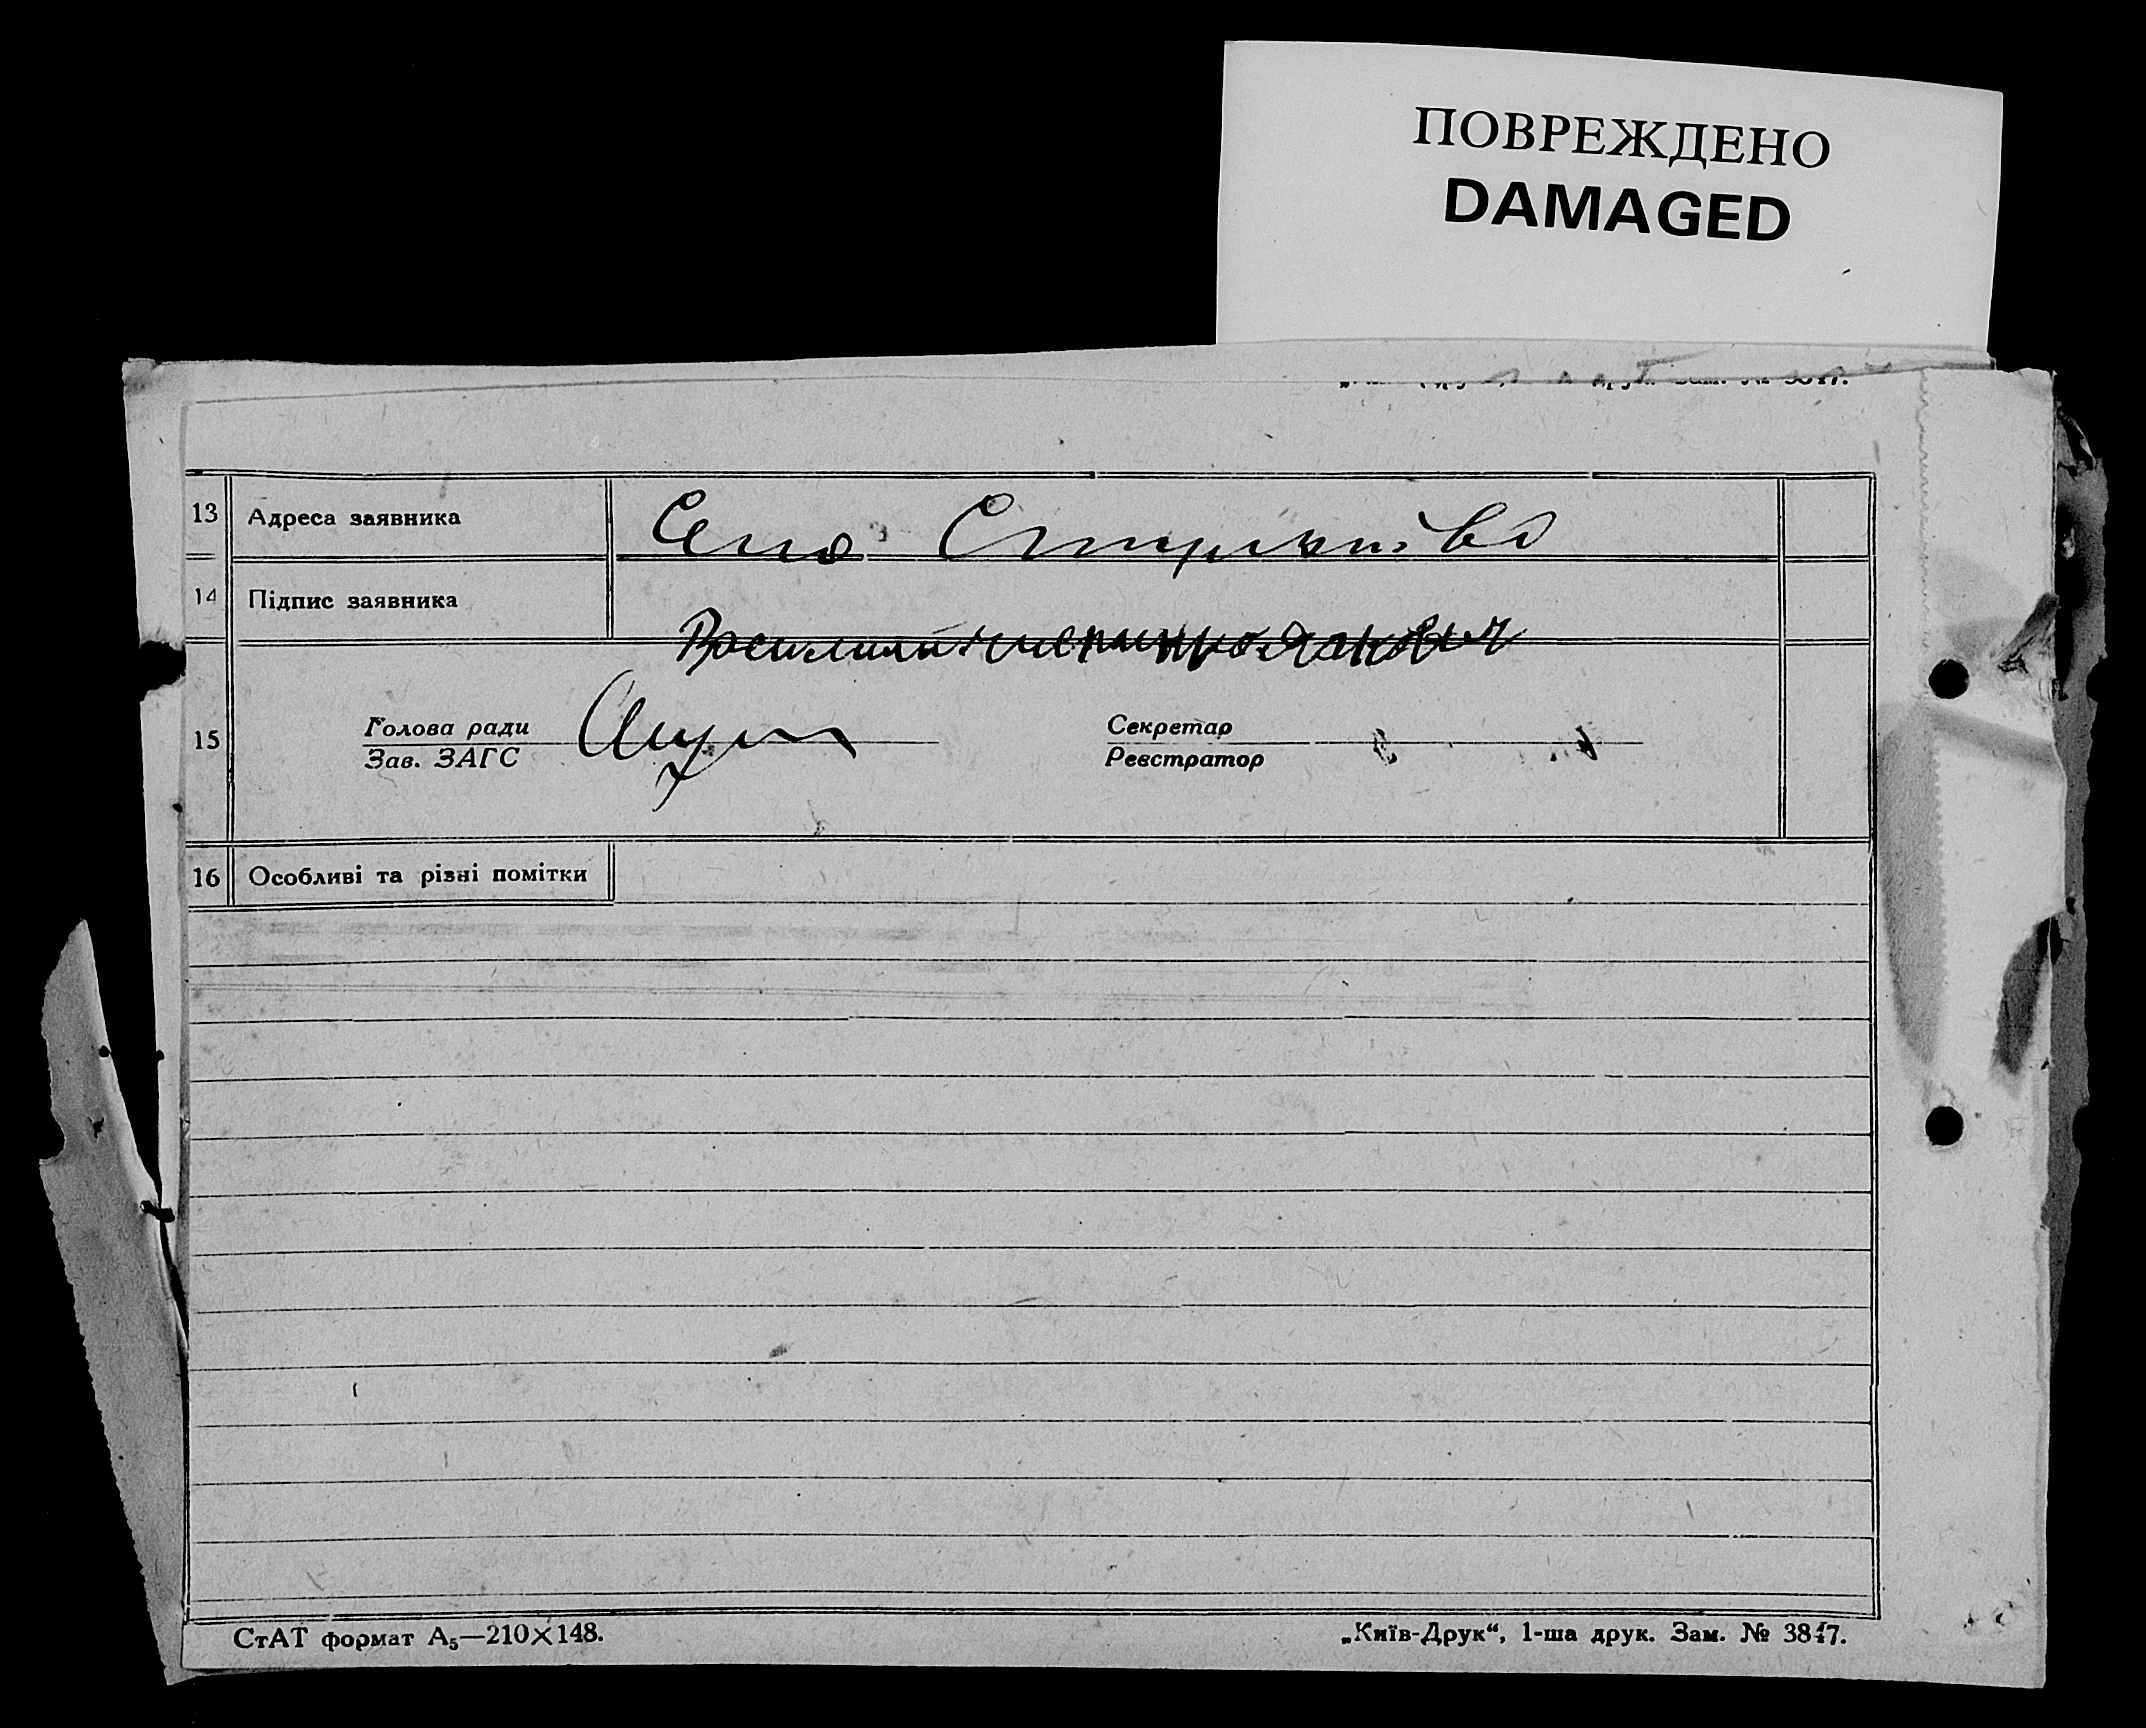 ПОВРЕЖДЕНО
DAMAGED
13 Адреса заявника Село
14 Підпис заявника
15 Голова ради Секретар
Зав. ЗАГС Реєстратор
16 Особливі та різні помітки
СтАТ формат А₅—210×148. „Київ-Друк“, 1-ша друк. Зам. № 3847.